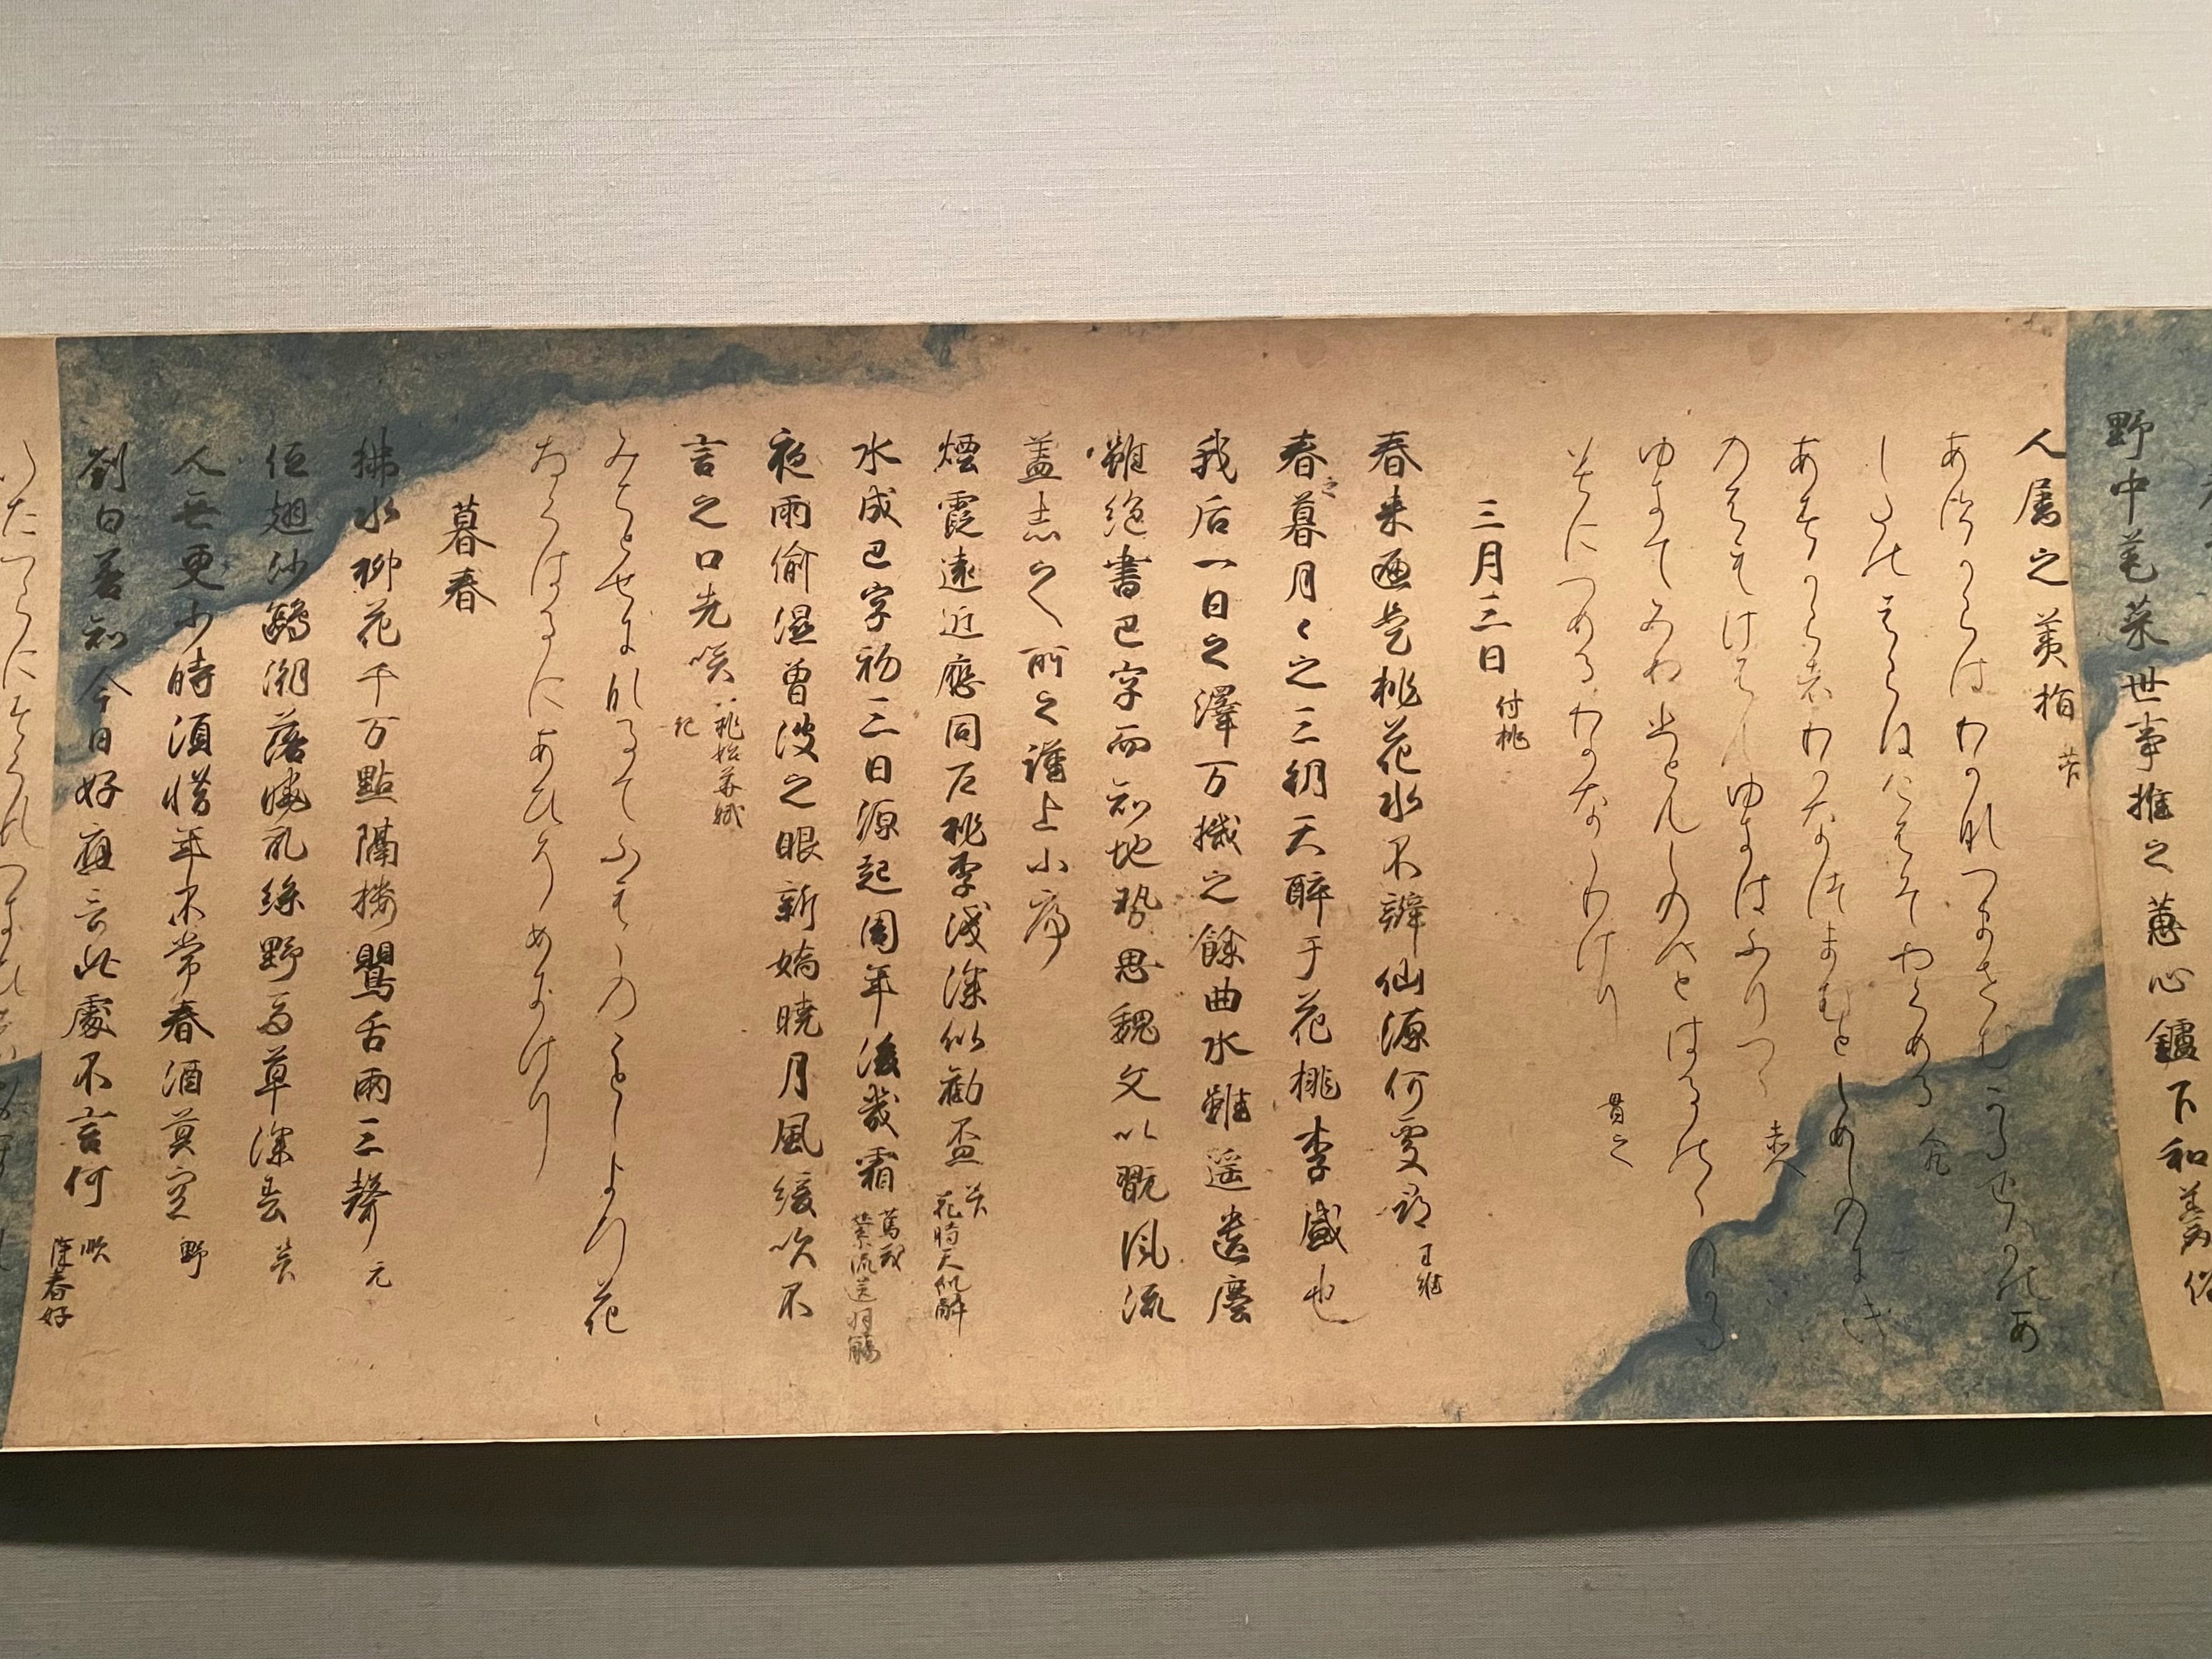 野中芼菜世事推之蕙心鑪下和羹俗
人属之荑指 菅
あすからはわかなつまさむかたをかのあ
したのはらはけふそやくめる 人
あすからはわかなつまむとしめしのにき
のふもけふもゆきはふりつゝ 赤人
ゆきてみぬ人もしのへとはるのゝ
みにつめるわかななりけり 貫之
三月三日 付桃
春来遍是桃花水不辨仙源何處尋 王維
春之暮月々之三朝天酔于花桃李盛也
我后一日之澤万機之餘曲水雖遥遺塵
雖絶書巴字而知地勢思魏文以翫風流
盖志之所之謹上小序
煙霞遠近應同戸桃李浅深似勧盃 菅 花時天似酔
水成巴字初三日源起周年後幾霜 篤茂 縈流送羽觴
夜雨偸湿曾波之眼新嬌暁月風緩吹不
言之口先咲 桃始華賦 紀
みちとせになるてふもゝのことしより花
さくはるにあひそめにけり
暮春
拂水柳花千万點隔楼鸎舌兩三聲 元
低翅沙鷗潮落暁乱絲野馬草深春 菅
人無更少時須惜年不常春酒莫空 野
劉白若知今日好應言此處不言何 順 春好